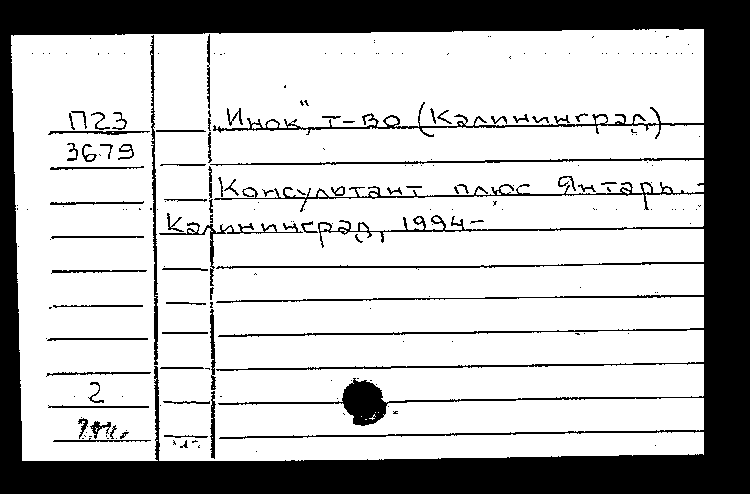 П23
„Инок", т-во (Калининград)
3679
Консультант плюс Янтарь. -
Калининград, 1994-
2